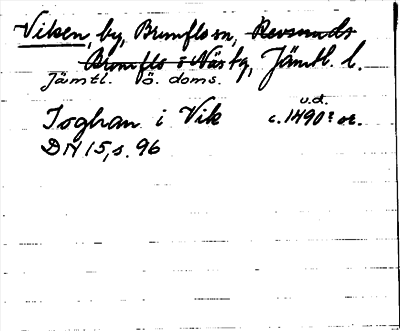 Viken, by, Brunflo sn, Revsunds
Brunflo o Näs tg, Jämtl. l.
Jämtl. ö. doms.
u.d.
Joghan i Vik c. 1490? or.
DN 15, s. 96